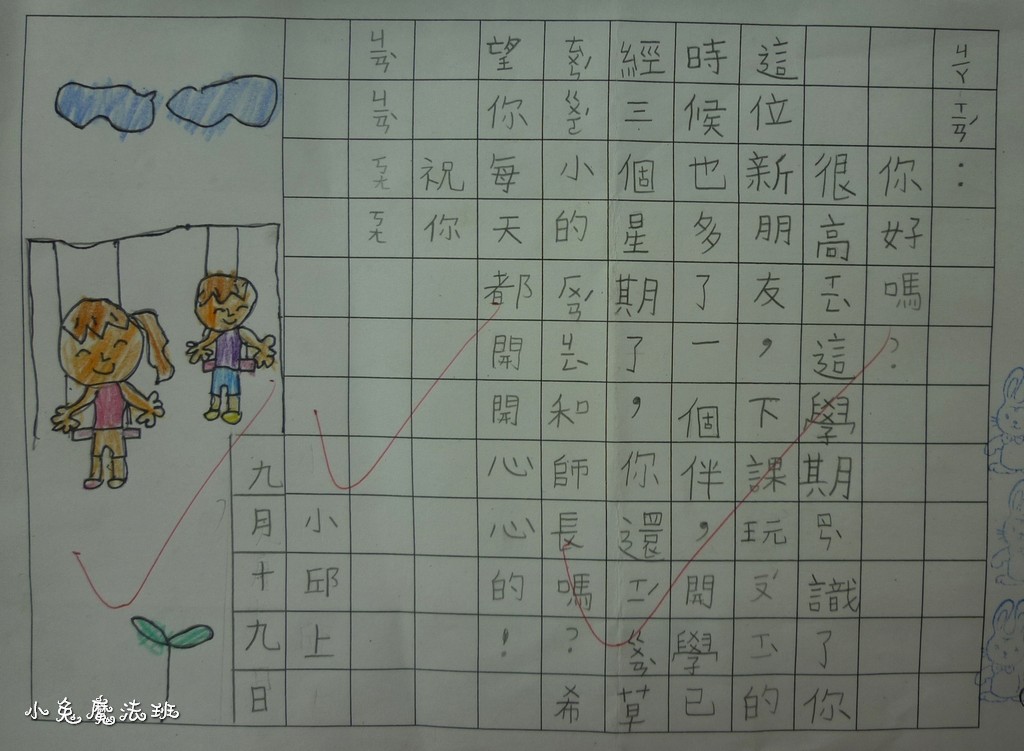 ㄐㄧㄚ ㄒㄩㄢˊ：
你好嗎？
很高ㄒㄧㄥˋ這學期ㄖㄣˋ識了你
這位新朋友，下課玩ㄧㄡˊㄒㄧˋ的
時候也多了一個伴，開學已
經三個星期了，你還ㄒㄧˊㄍㄨㄢˋ草
ㄊㄢˊㄍㄨㄛˊ小的ㄏㄨㄢˊㄐㄧㄥˋ和師長嗎？希
望你每天都開開心心的！
祝你
ㄐㄧㄢˋㄐㄧㄢˋㄎㄤㄎㄤ
小邱上
九月十九日
小兔魔法班